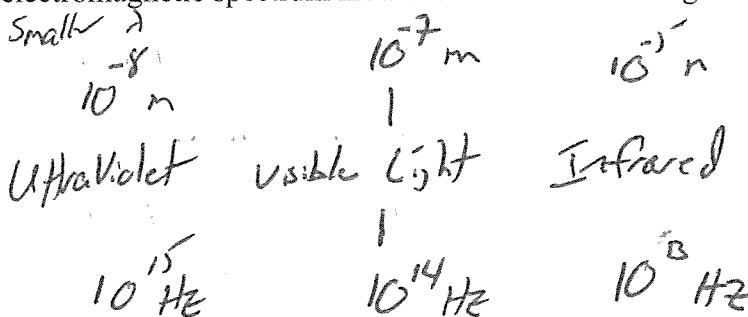 Smaller λ
10^-8 m 10^-7 m 10^-5 m
Ultraviolet visible Light Infrared
10^15 Hz 10^14 Hz 10^13 Hz